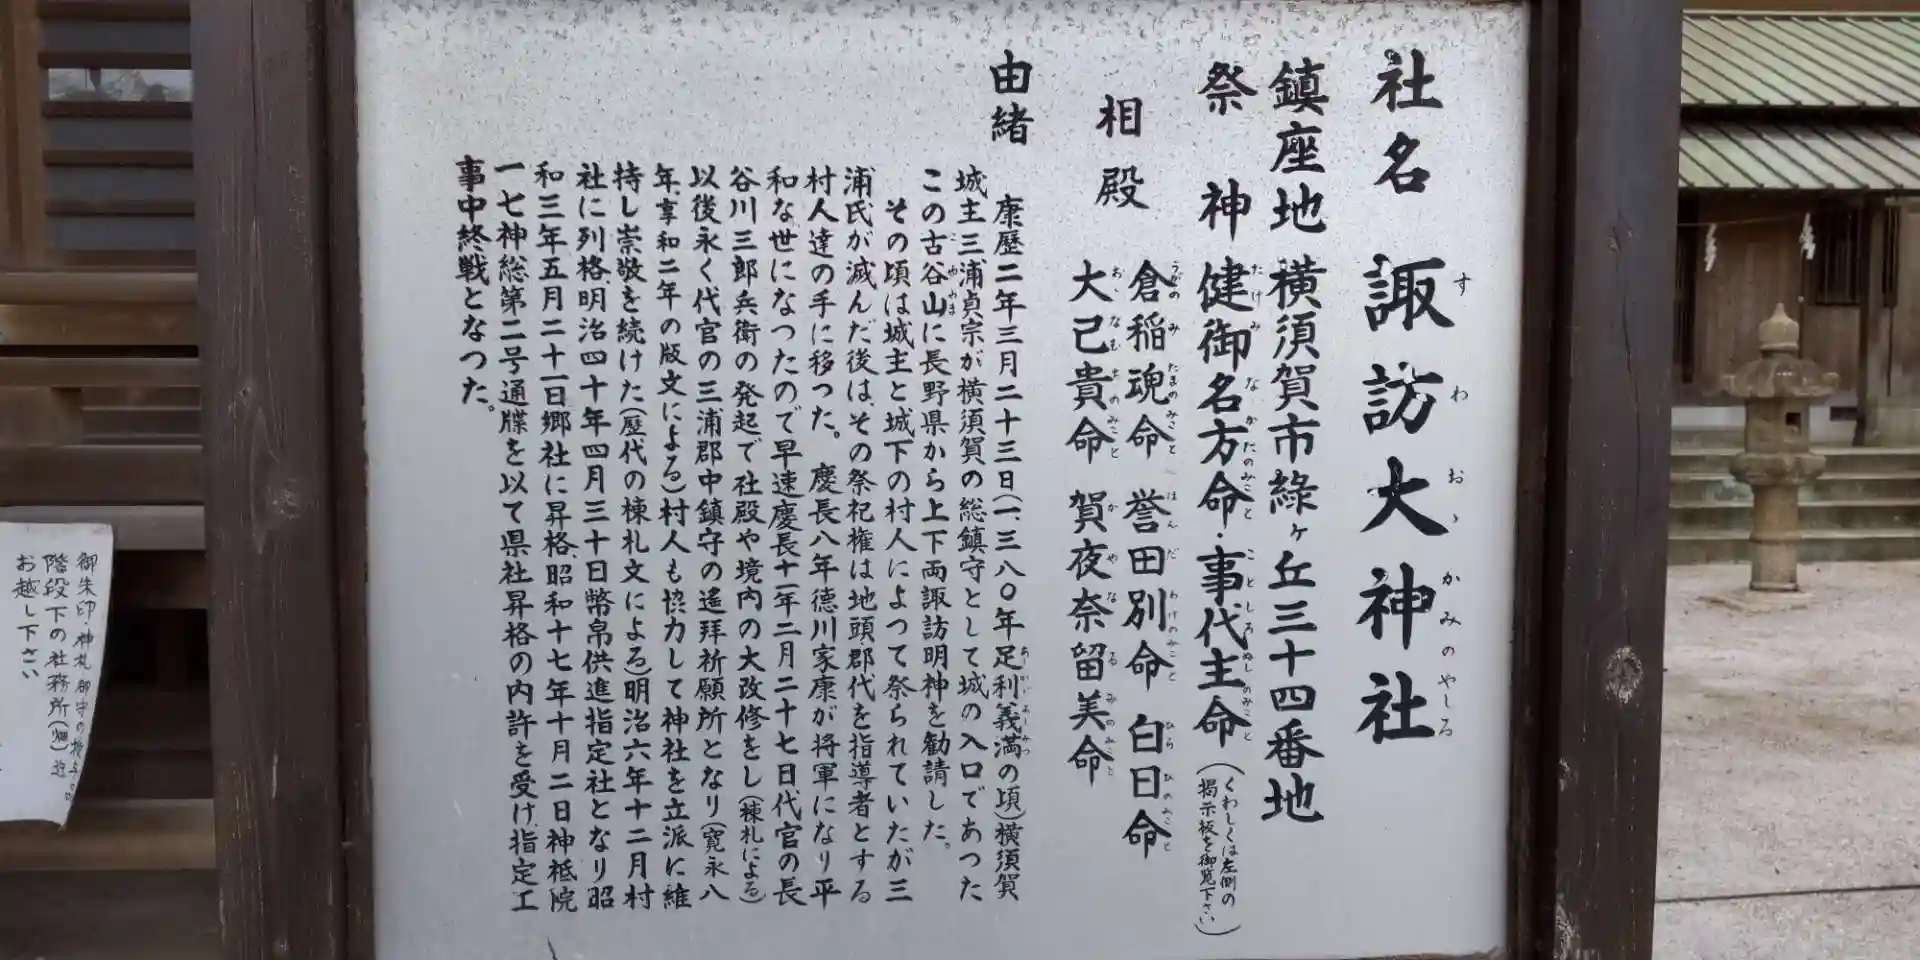 社名 諏訪大神社
すわおゝかみのやしろ
鎮座地 横須賀市緑ヶ丘三十四番地
祭神 健御名方命・事代主命(くわしくは左側の掲示板を御覧下さい)
たけみなかたのみこと ことしろぬしのみこと
相殿
倉稲魂命 誉田別命 白日命
うがのみたまのみこと ほんだわけのみこと ひらひのみこと
大己貴命 賀夜奈留美命
おゝなむちのみこと かやなるみのみこと
由緒
康歴二年三月二十三日(一、三八〇年足利義満の頃)横須賀
あしかゞよしみつ
城主三浦貞宗が横須賀の総鎮守として城の入口であつた
この古谷山に長野県から上下両諏訪明神を勧請した。
その頃は城主と城下の村人によつて祭られていたが三
浦氏が滅んだ後は、その祭祀権は地頭郡代を指導者とする
村人達の手に移つた。慶長八年徳川家康が将軍になり平
和な世になつたので早速慶長十一年二月二十七日代官の長
谷川三郎兵衛の発起で社殿や境内の大改修をし(棟札による)
以後永く代官の三浦郡中鎮守の遙拝祈願所となり(寛永八
年、享和二年の版文による)村人も協力して神社を立派に維
持し崇敬を続けた(歴代の棟札文による)明治六年十二月村
社に列格、明治四十年四月三十日幣帛供進指定社となり昭
和三年五月二十一日郷社に昇格、昭和十七年十月二日神祇院
一七神総第二号通牒を以て県社昇格の内許を受け、指定工
事中終戦となつた。
御朱印・神札・御守の
階段下の社務所(畑)迄
お越し下さい